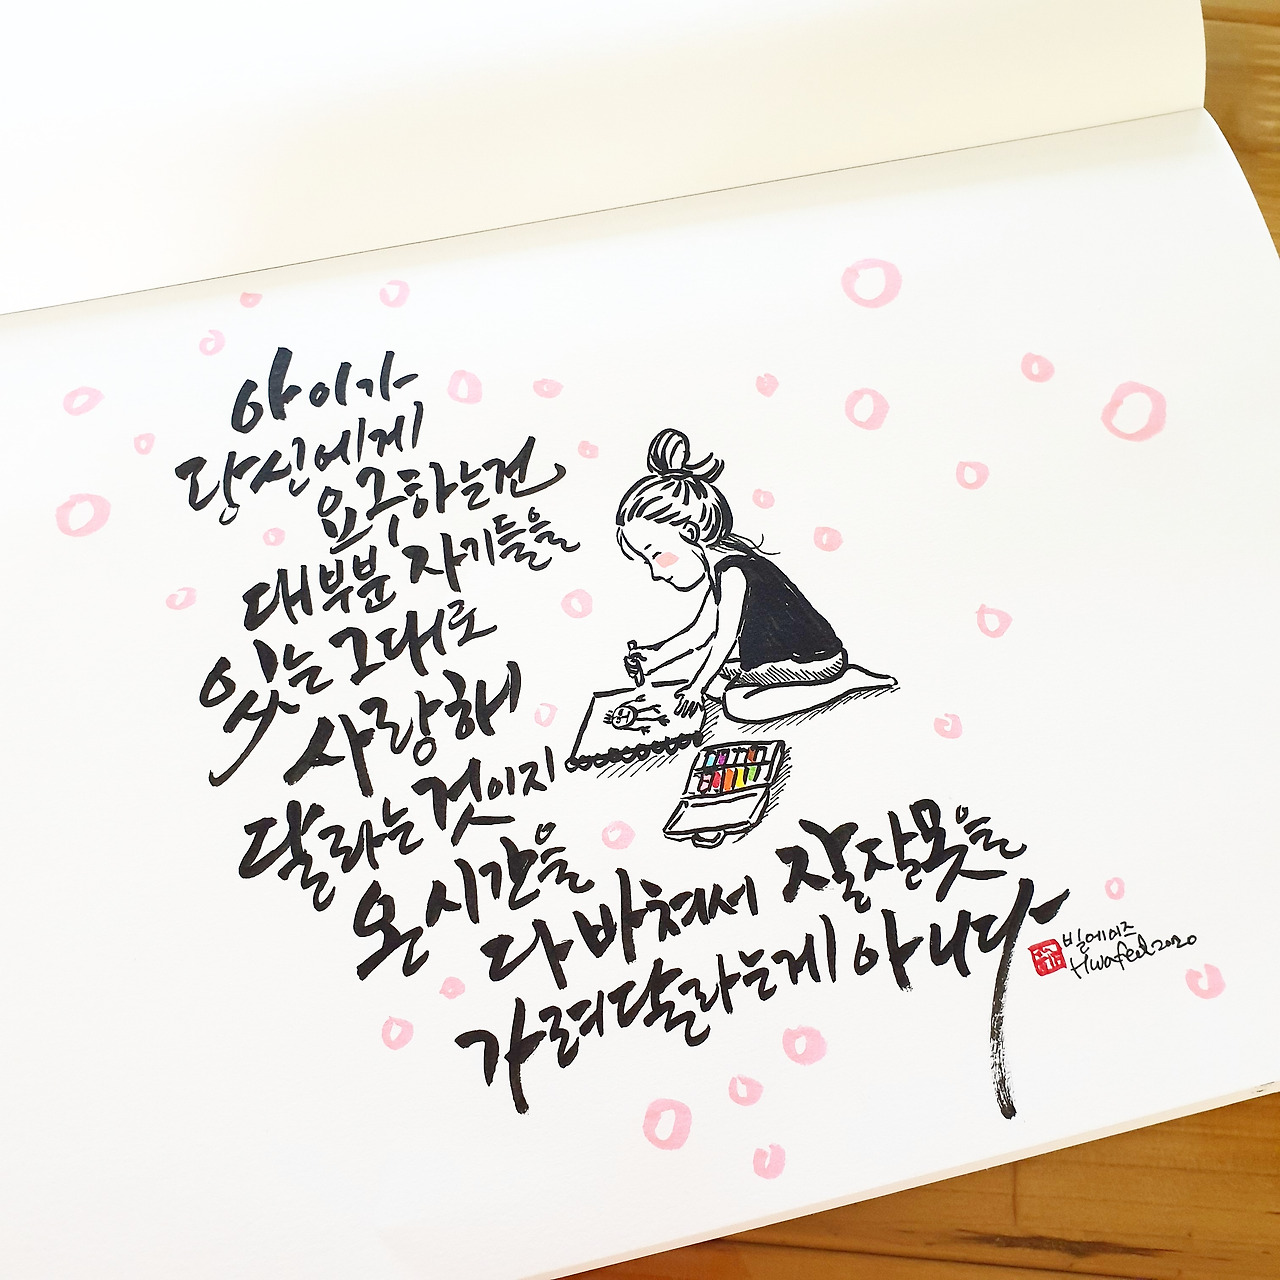 아이가
당신에게
요구하는건
대부분 자기들을
있는 그대로
사랑해
달라는 것이지
온 시간을
다 바쳐서 잘잘못을
가려달라는게 아니다
빌에이즈
Hwafeel 2020